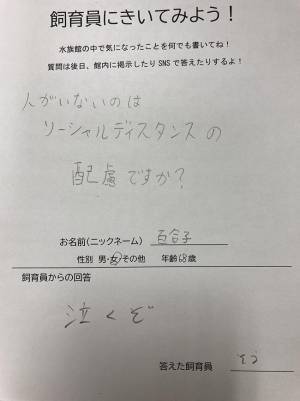 飼育員にきいてみよう！
水族館の中で気になったことを何でも書いてね！
質問は後日、館内に掲示したりSNSで答えたりするよ！
人がいないのは
ソーシャルディスタンスの
配慮ですか？
お名前(ニックネーム) 百合子
性別 男・女・その他 年齢68歳
飼育員からの回答
泣くぞ
答えた飼育員